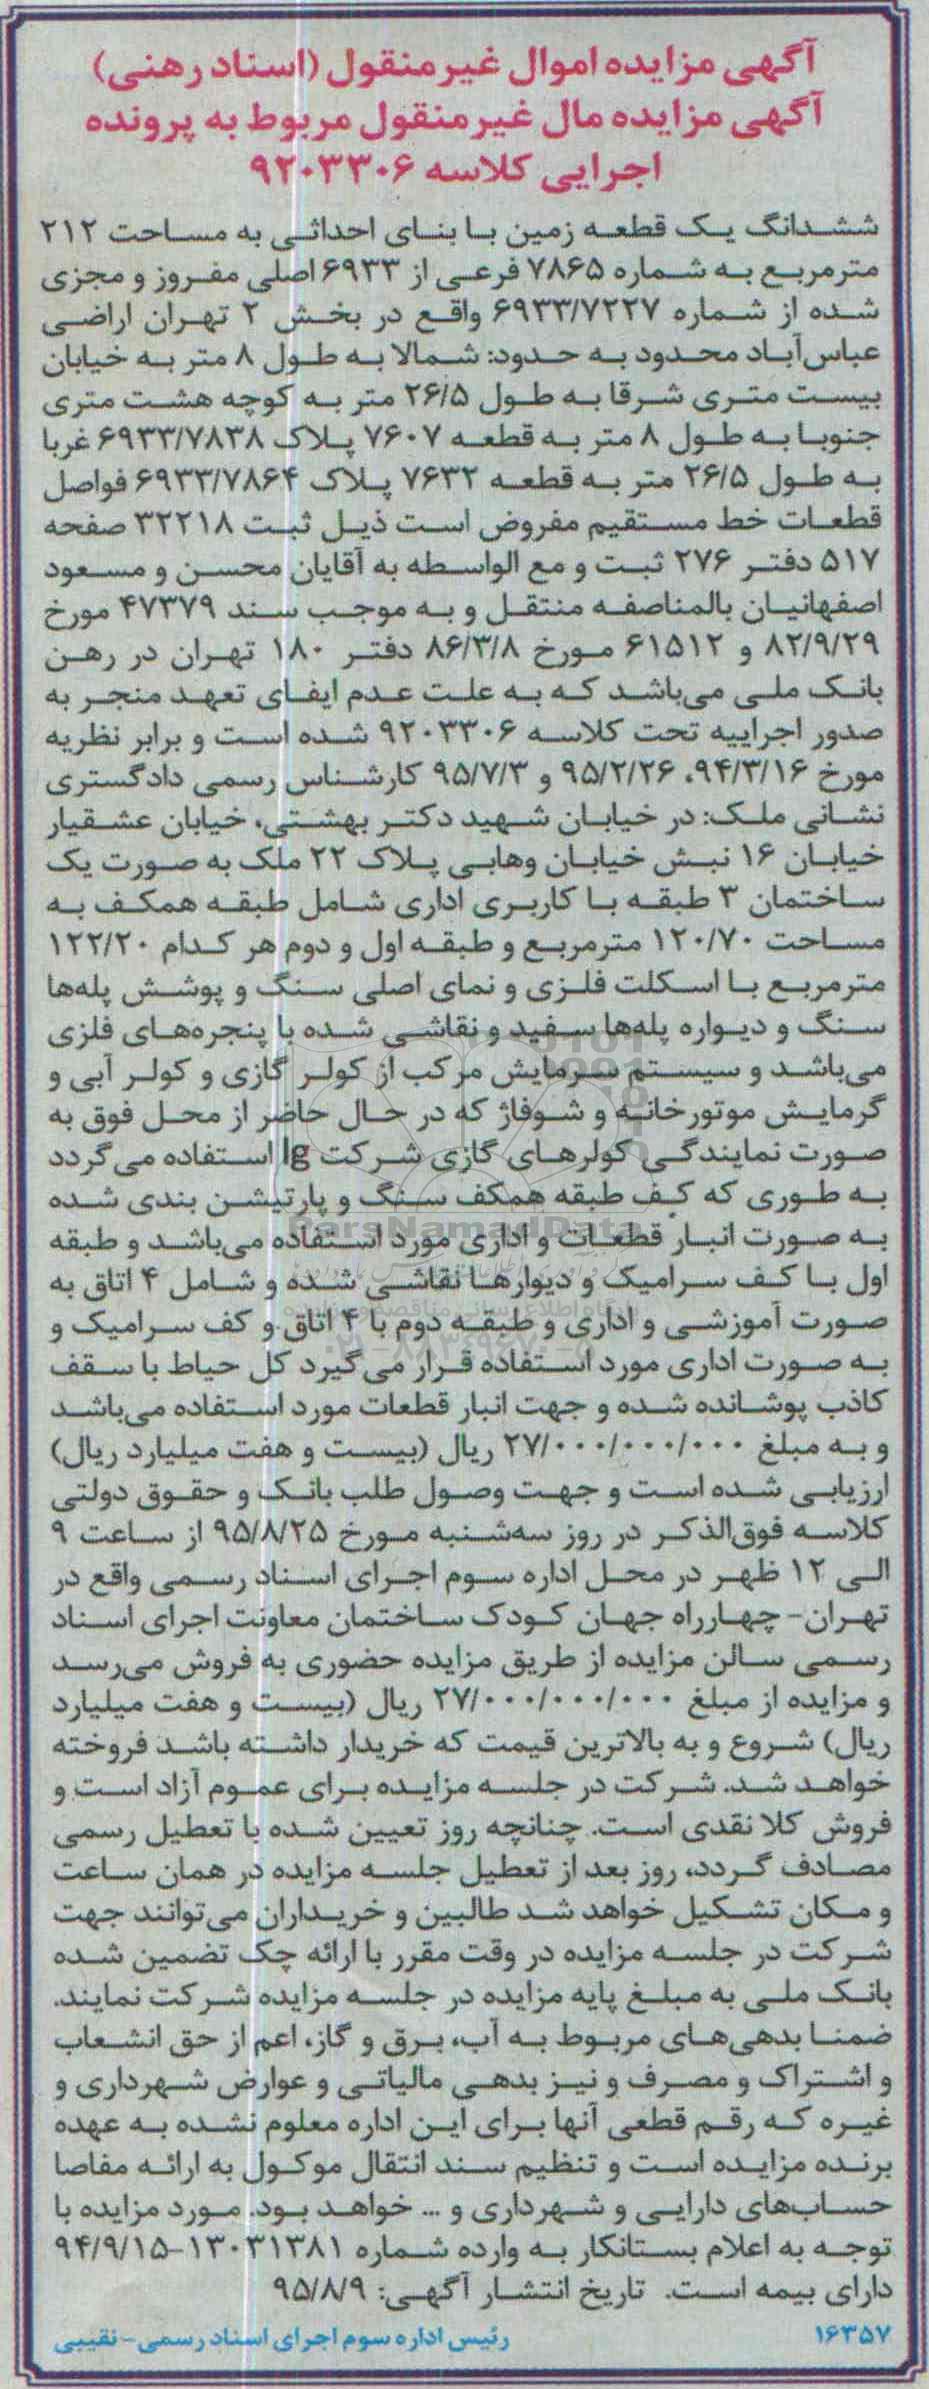 آگهی مزایده اموال غیرمنقول (اسناد رهنی)
آگهی مزایده مال غیرمنقول مربوط به پرونده
اجرایی کلاسه ۹۲۰۳۳۰۶
ششدانگ یک قطعه زمین با بنای احداثی به مساحت ۲۱۲
مترمربع به شماره ۷۸۶۵ فرعی از ۶۹۳۳ اصلی مفروز و مجزی
شده از شماره ۶۹۳۳/۷۲۲۷ واقع در بخش ۲ تهران اراضی
عباس‌آباد محدود به حدود: شمالا به طول ۸ متر به خیابان
بیست متری شرقا به طول ۲۶/۵ متر به کوچه هشت متری
جنوبا به طول ۸ متر به قطعه ۷۶۰۷ پلاک ۶۹۳۳/۷۸۳۸ غربا
به طول ۲۶/۵ متر به قطعه ۷۶۳۲ پلاک ۶۹۳۳/۷۸۶۴ فواصل
قطعات خط مستقیم مفروض است ذیل ثبت ۳۲۲۱۸ صفحه
۵۱۷ دفتر ۲۷۶ ثبت و مع الواسطه به آقایان محسن و مسعود
اصفهانیان بالمناصفه منتقل و به موجب سند ۴۷۳۷۹ مورخ
۸۲/۹/۲۹ و ۶۱۵۱۲ مورخ ۸۶/۳/۸ دفتر ۱۸۰ تهران در رهن
بانک ملی می‌باشد که به علت عدم ایفای تعهد منجر به
صدور اجراییه تحت کلاسه ۹۲۰۳۳۰۶ شده است و برابر نظریه
مورخ ۹۴/۳/۱۶، ۹۵/۲/۲۶ و ۹۵/۷/۳ کارشناس رسمی دادگستری
نشانی ملک: در خیابان شهید دکتر بهشتی، خیابان عشقیار
خیابان ۱۶ نبش خیابان وهابی پلاک ۲۲ ملک به صورت یک
ساختمان ۳ طبقه با کاربری اداری شامل طبقه همکف به
مساحت ۱۲۰/۷۰ مترمربع و طبقه اول و دوم هر کدام ۱۲۲/۲۰
مترمربع با اسکلت فلزی و نمای اصلی سنگ و پوشش پله‌ها
سنگ و دیواره پله‌ها سفید و نقاشی شده با پنجره‌های فلزی
می‌باشد و سیستم سرمایش مرکب از کولر گازی و کولر آبی و
گرمایش موتورخانه و شوفاژ که در حال حاضر از محل فوق به
صورت نمایندگی کولرهای گازی شرکت lg استفاده می‌گردد
به طوری که کف طبقه همکف سنگ و پارتیشن بندی شده
به صورت انبار قطعات و اداری مورد استفاده می‌باشد و طبقه
اول با کف سرامیک و دیوارها نقاشی شده و شامل ۴ اتاق به
صورت آموزشی و اداری و طبقه دوم با ۴ اتاق و کف سرامیک و
به صورت اداری مورد استفاده قرار می‌گیرد کل حیاط با سقف
کاذب پوشانده شده و جهت انبار قطعات مورد استفاده می‌باشد
و به مبلغ ۲۷/۰۰۰/۰۰۰/۰۰۰ ریال (بیست و هفت میلیارد ریال)
ارزیابی شده است و جهت وصول طلب بانک و حقوق دولتی
کلاسه فوق‌الذکر در روز سه‌شنبه مورخ ۹۵/۸/۲۵ از ساعت ۹
الی ۱۲ ظهر در محل اداره سوم اجرای اسناد رسمی واقع در
تهران- چهارراه جهان کودک ساختمان معاونت اجرای اسناد
رسمی سالن مزایده از طریق مزایده حضوری به فروش می‌رسد
و مزایده از مبلغ ۲۷/۰۰۰/۰۰۰/۰۰۰ ریال (بیست و هفت میلیارد
ریال) شروع و به بالاترین قیمت که خریدار داشته باشد فروخته
خواهد شد. شرکت در جلسه مزایده برای عموم آزاد است و
فروش کلا نقدی است. چنانچه روز تعیین شده با تعطیل رسمی
مصادف گردد، روز بعد از تعطیل جلسه مزایده در همان ساعت
و مکان تشکیل خواهد شد طالبین و خریداران می‌توانند جهت
شرکت در جلسه مزایده در وقت مقرر با ارائه چک تضمین شده
بانک ملی به مبلغ پایه مزایده در جلسه مزایده شرکت نمایند.
ضمنا بدهی‌های مربوط به آب، برق و گاز، اعم از حق انشعاب
و اشتراک و مصرف و نیز بدهی مالیاتی و عوارض شهرداری و
غیره که رقم قطعی آنها برای این اداره معلوم نشده به عهده
برنده مزایده است و تنظیم سند انتقال موکول به ارائه مفاصا
حساب‌های دارایی و شهرداری و ... خواهد بود. مورد مزایده با
توجه به اعلام بستانکار به وارده شماره ۱۳۰۳۱۳۸۱-۹۴/۹/۱۵
دارای بیمه است. تاریخ انتشار آگهی: ۹۵/۸/۹
۱۶۳۵۷ رئیس اداره سوم اجرای اسناد رسمی- نقیبی
ParsNamadData